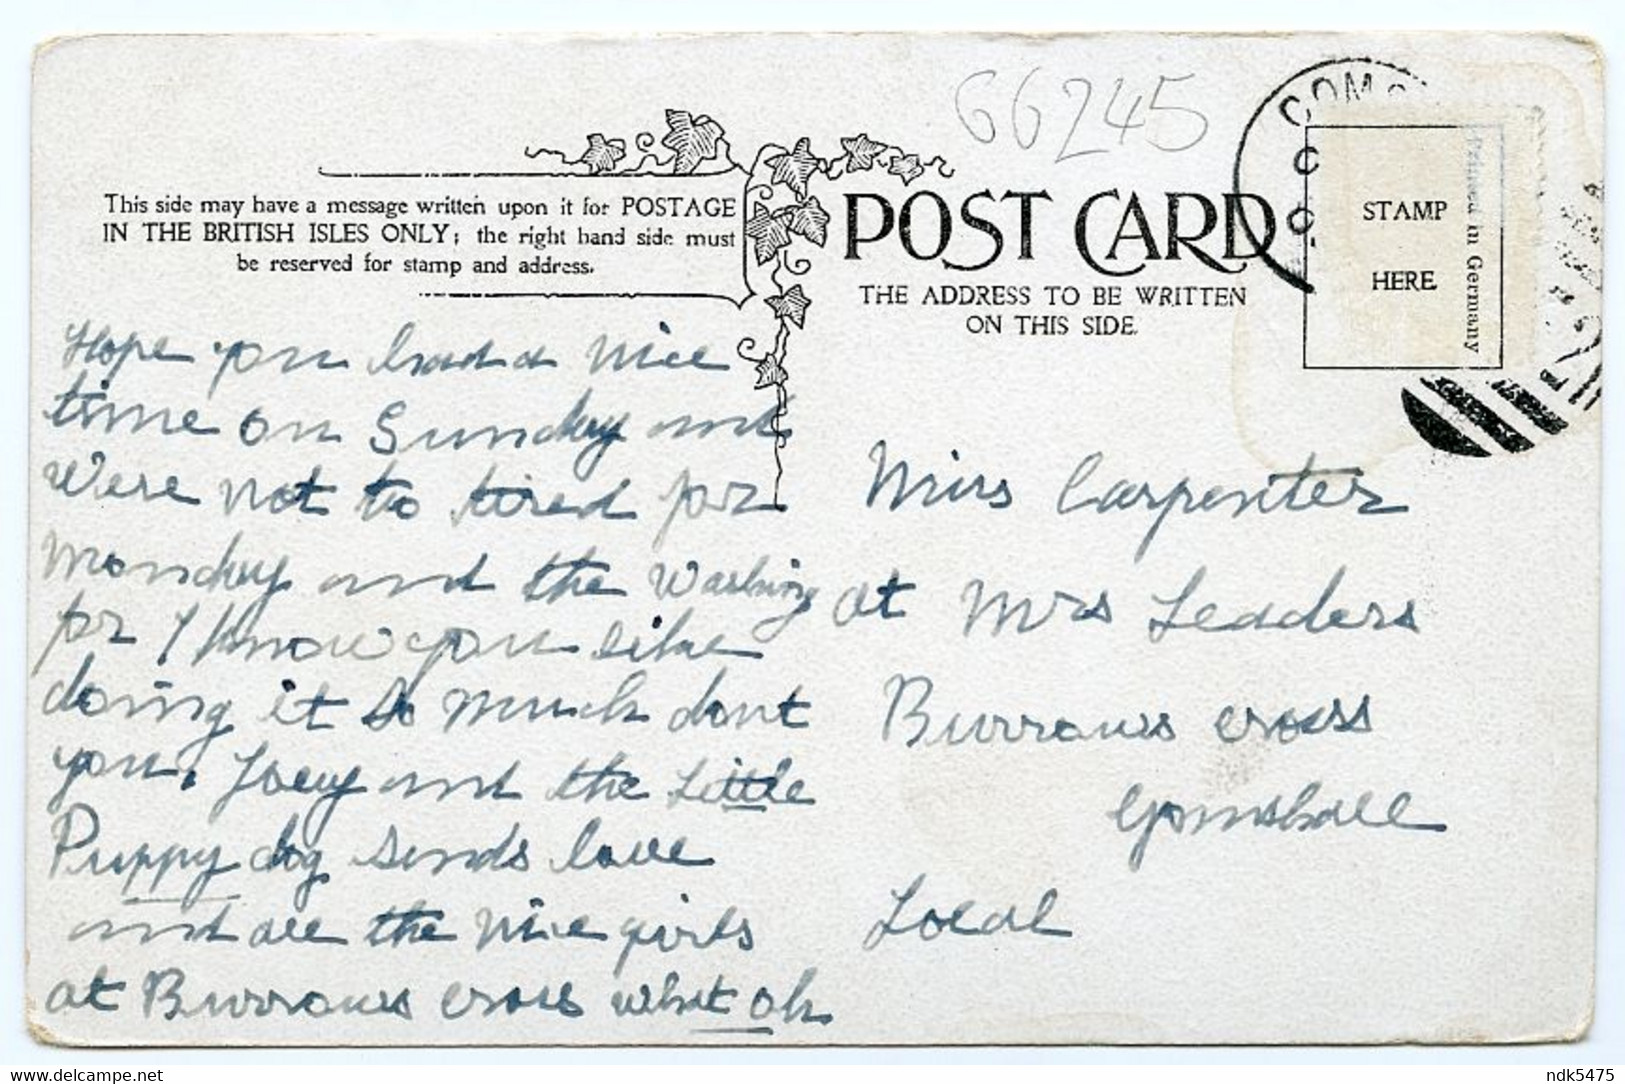 66245
This side may have a message written upon it for POSTAGE
IN THE BRITISH ISLES ONLY; the right hand side must
be reserved for stamp and address.
POST CARD
THE ADDRESS TO BE WRITTEN
ON THIS SIDE.
STAMP
HERE
Printed in Germany
Hope you had a nice
time on Sunday and
were not to tired for
Monday and the washing
for I know you like
doing it so much dont
you. Joey and the Little
Puppy dog sends love
and all the nice girls
at Burrows cross what oh
Miss Carpenter
at Mrs Leaders
Burrows cross
Gomshall
Local
www.delcampe.net
ndk5475